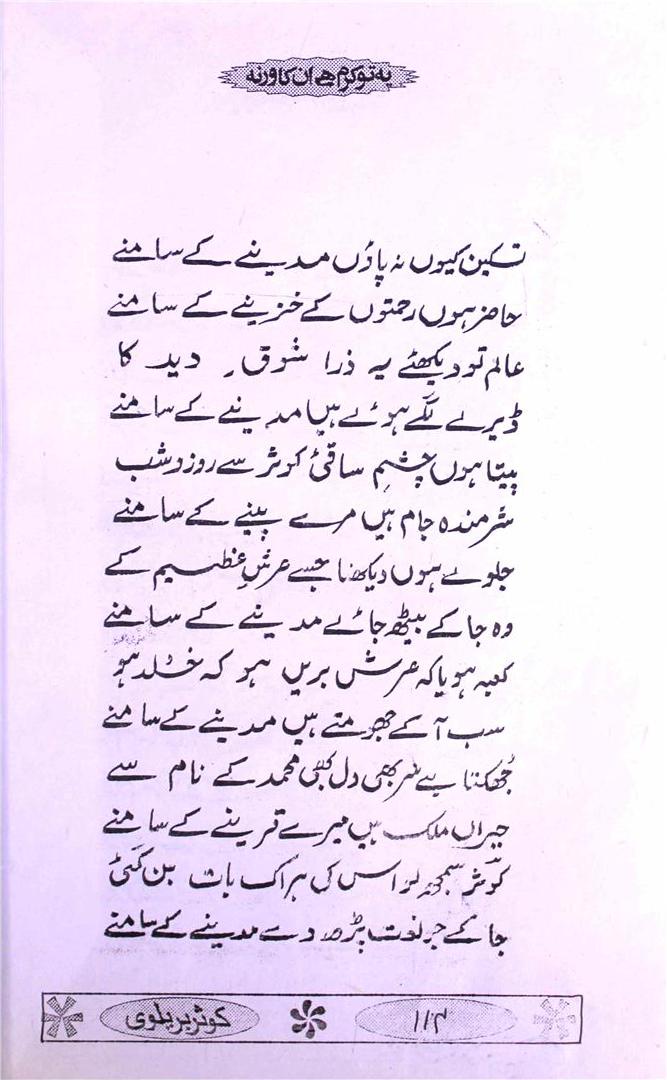 یہ تو کرم ہے ان کا ورنہ
تسکین کیوں نہ پاؤں مدینے کے سامنے
حاضر ہوں رحمتوں کے خزینے کے سامنے
عالم تو دیکھئے یہ ذرا شوقِ دید کا
ڈیرے لگے ہوئے ہیں مدینے کے سامنے
پیتا ہوں چشمِ ساقیٔ کوثر سے روز و شب
شرمندہ جام ہیں مرے پینے کے سامنے
جلوے ہوں دیکھنا جسے عرشِ عظیم کے
وہ جا کے بیٹھ جائے مدینے کے سامنے
کعبہ ہو یا کہ عرش بریں ہو کہ خلد ہو
سب آ کے جھومتے ہیں مدینے کے سامنے
جُھکتا ہے سر بھی دل بھی محمد کے نام سے
حیراں ملک ہیں میرے قرینے کے سامنے
کوثر سمجھ لو اس کی ہر اک بات بن گئی
جا کے جو نعت پڑھ دے مدینے کے سامنے
کوثر بریلوی
۱۱۴